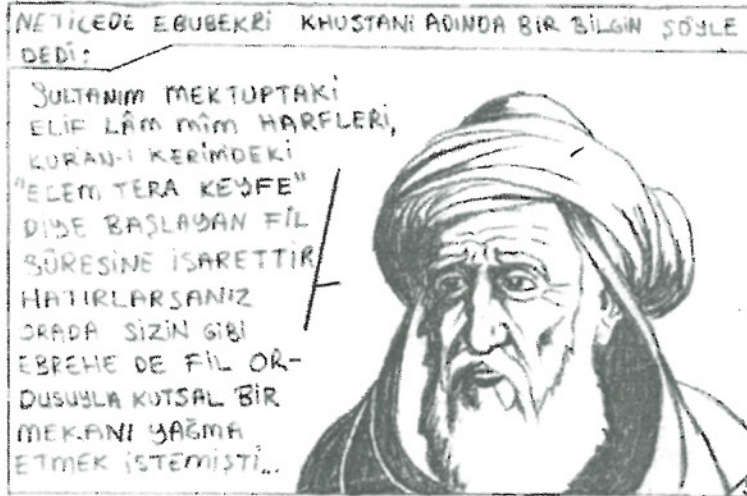 NETİCEDE EBUBEKRİ KHUSTANİ ADINDA BİR BİLGİN ŞÖYLE
DEDİ:
SULTANIM MEKTUPTAKİ
ELİF LÂM MÎM HARFLERİ,
KURAN-I KERİMDEKİ
"ELEM TERA KEYFE"
DİYE BAŞLAYAN FİL
SÛRESİNE İŞARETTİR
HATIRLARSANIZ
ORADA SİZİN GİBİ
EBREHE DE FİL OR-
DUSUYLA KUTSAL BİR
MEKANI YAĞMA
ETMEK İSTEMİŞTİ...